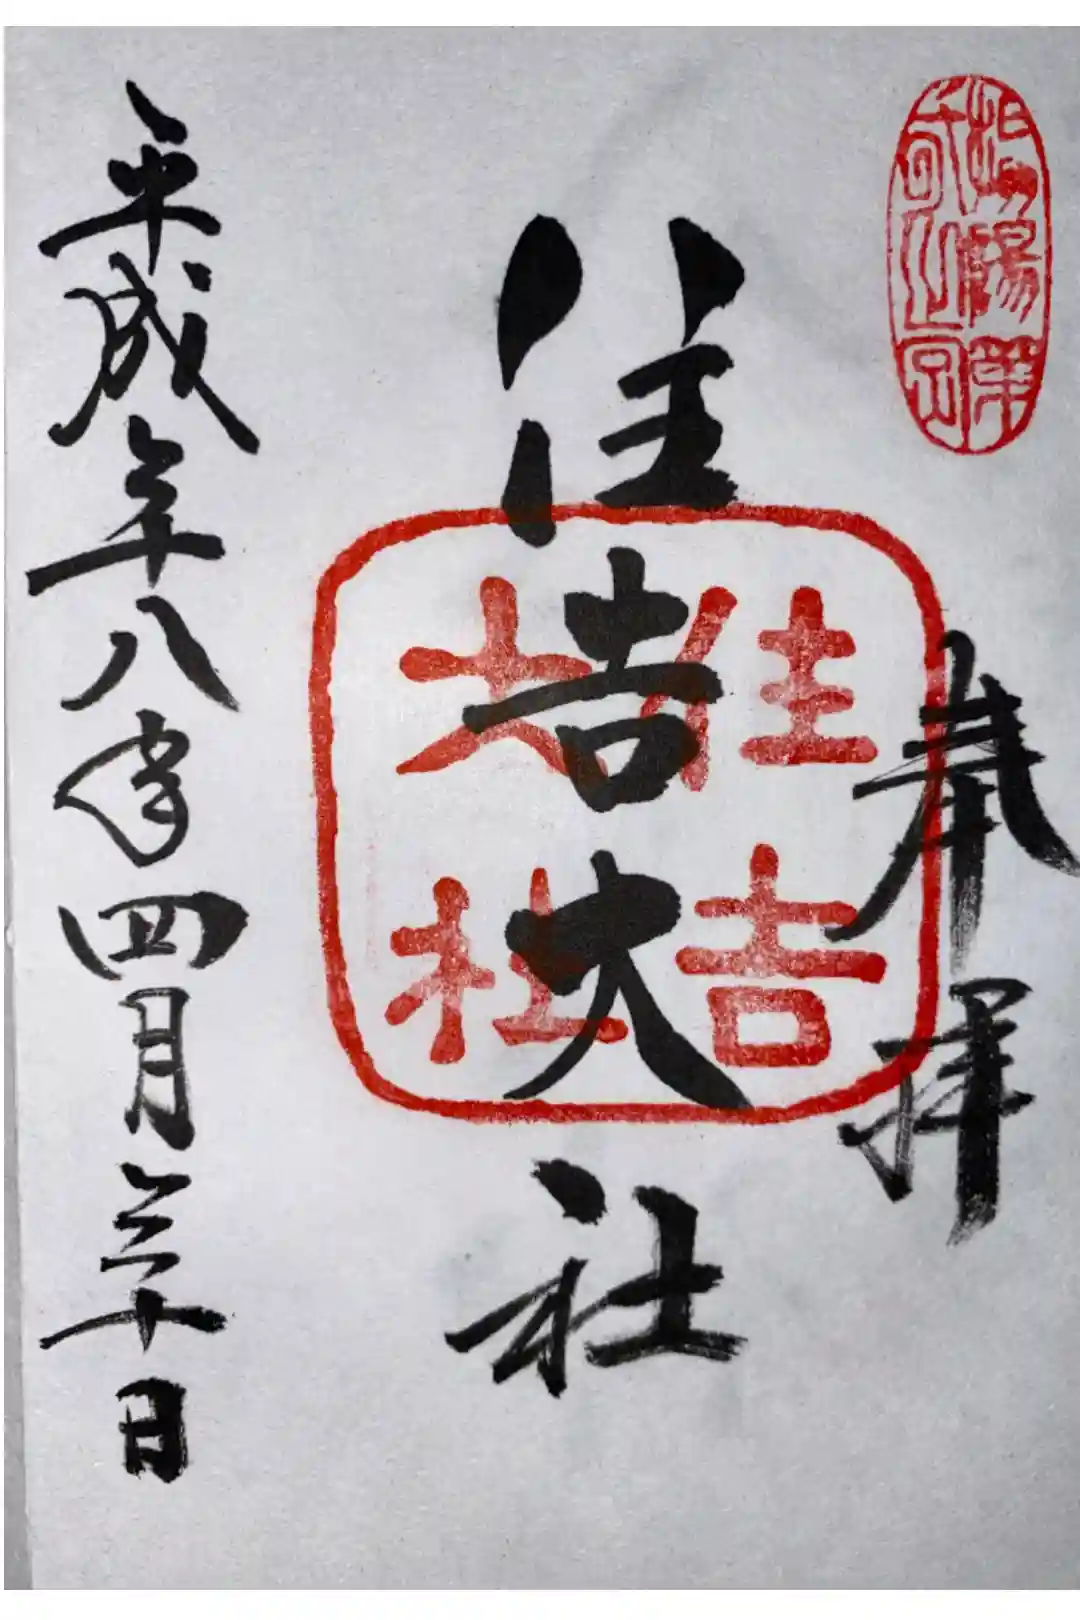 奉拝
住吉大社
住吉
大社
平成二十八年四月三十日